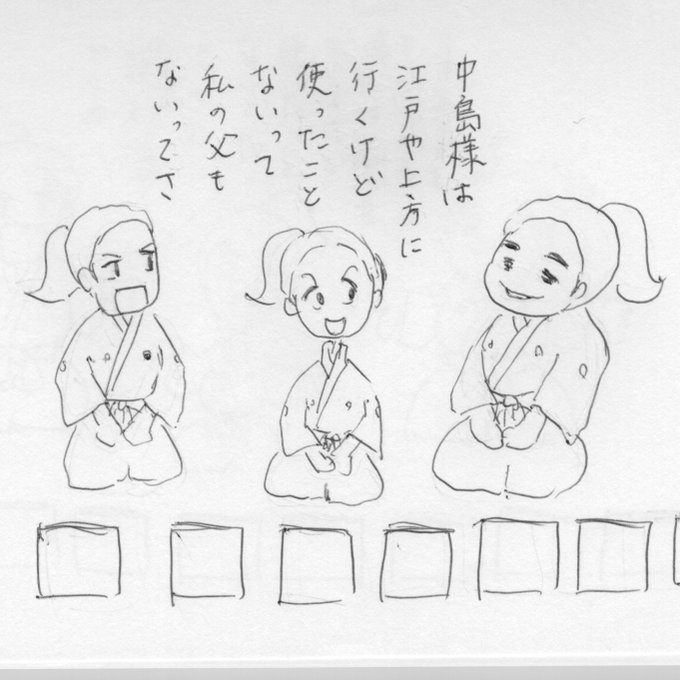 中島様は
江戸や上方に
行くけど
使ったこと
ないって
私の父も
ないってさ